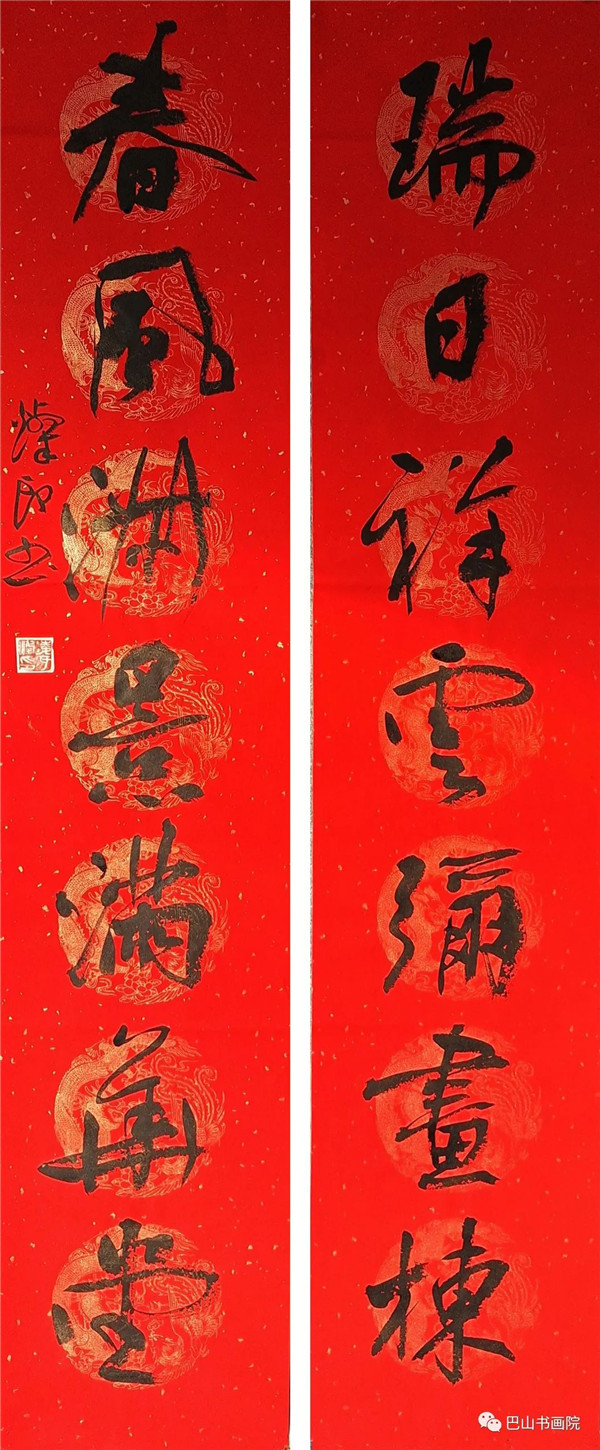 瑞日祥云彌畫棟
春風淑景滿華堂
巴山书画院